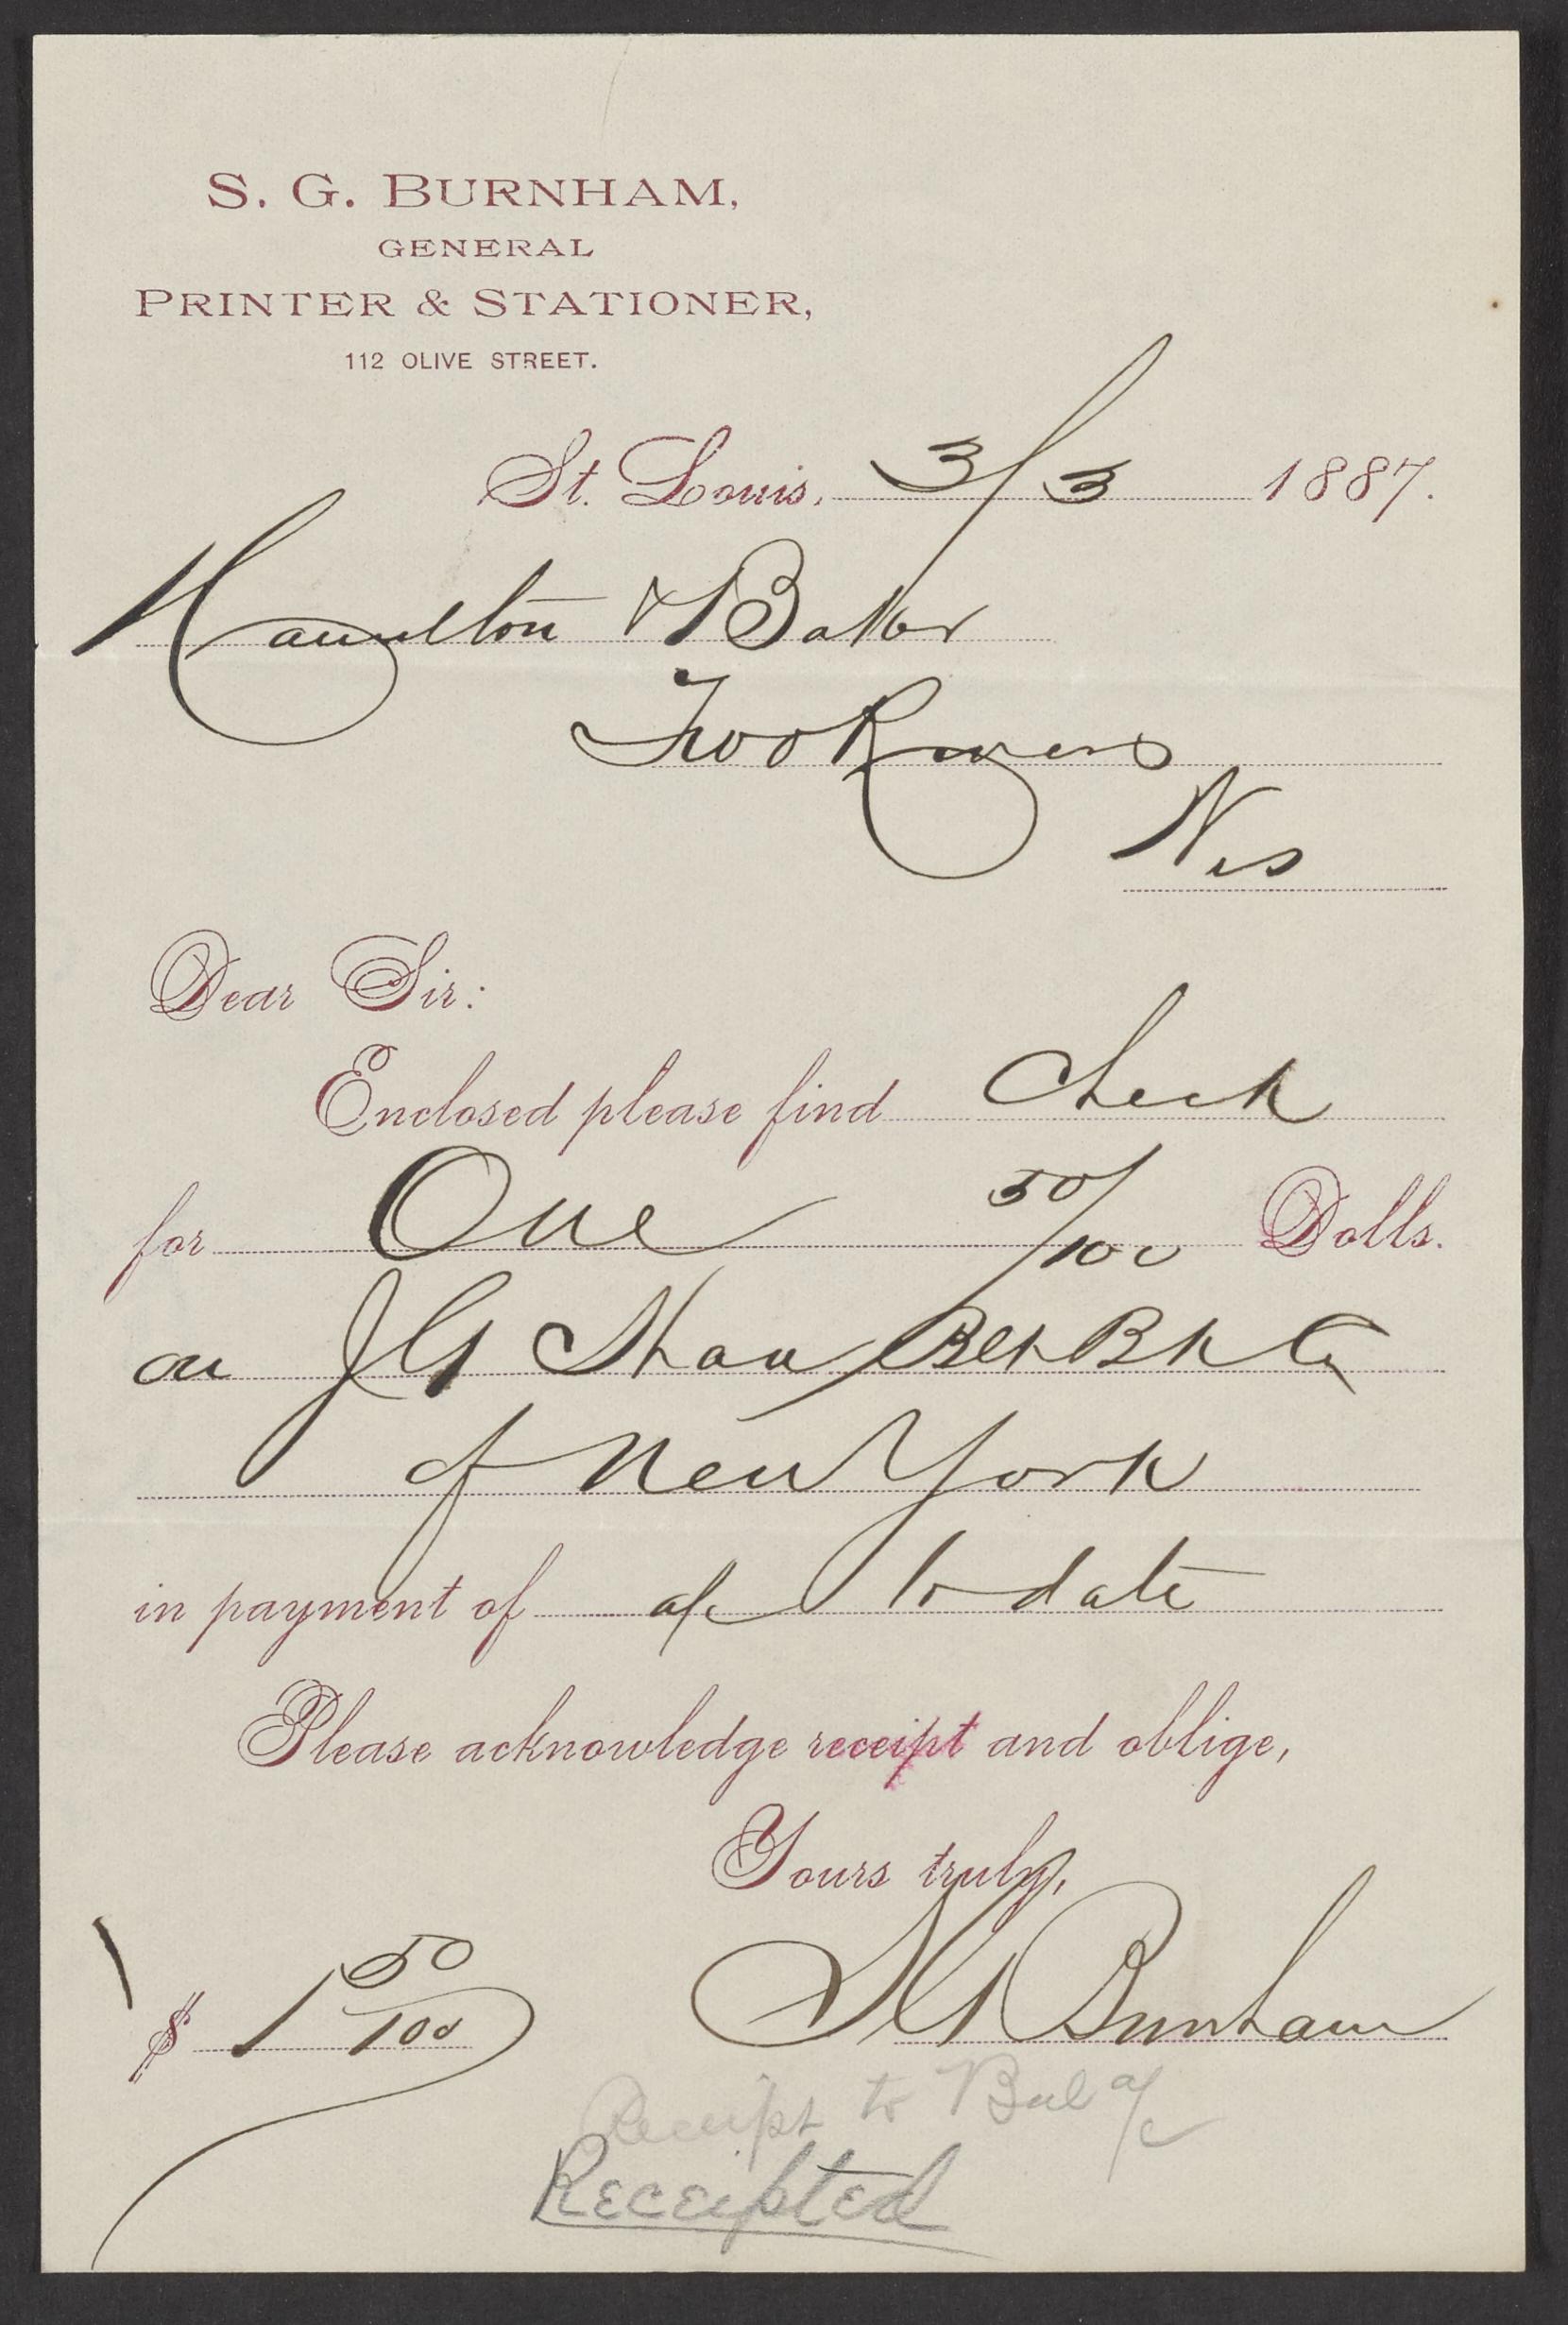 S. G. BURNHAM,
GENERAL
PRINTER & STATIONER,
112 OLIVE STREET.
St. Louis, 3/3 1887.
Hamilton & Baker
Two Rivers
Wis
Dear Sir:
Enclosed please find Check
for One 50/100 Dolls.
on J G Shaw Blk Bk Co
of New York
in payment of a/c to date
Please acknowledge receipt and oblige,
Yours truly,
$ 1 50/100 S G Burnham
Receipt to Bal a/c
Receipted